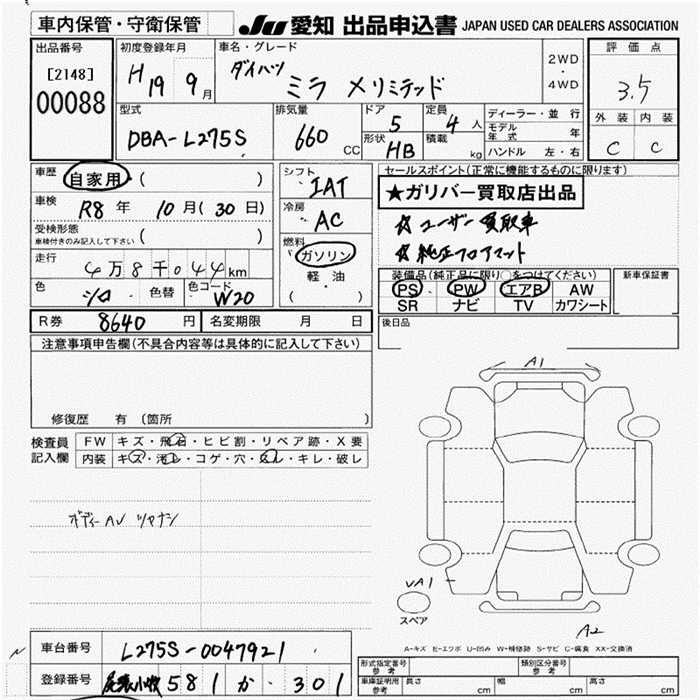 車内保管・守衛保管 JU 愛知 出品申込書 JAPAN USED CAR DEALERS ASSOCIATION
出品番号 [2148] 00088
初度登録年月 H19 9月
車名・グレード ダイハツ ミラ メリミテッド
2WD・4WD
評価点 3.5
外装 内装
C C
型式 DBA-L275S
排気量 660 CC
ドア 5
形状 HB
定員 4人
積載 kg
ディーラー・並行
モデル年式 年
ハンドル 左・右
車歴 自家用 ( )
車検 R8年 10月(30日)
受検形態 ( )
車検付きのみ記入して下さい
走行 4万8千044km
色 シロ 色替 色コード W20
シフト IAT
冷房 AC
燃料 ガソリン
軽・油
( )
セールスポイント(正常に機能するものに限ります)
★ガリバー買取店出品
☆ユーザー買取車
☆純正フロアマット
装備品(純正品に限り○をつけてください)
PS PW エアB AW
SR ナビ TV カワシート
新車保証書
R券 8640円 名変期限 月 日
後日品
注意事項申告欄(不具合内容等は具体的に記入して下さい)
修復歴 有 (箇所
検査員記入欄
FW キズ・飛石・ヒビ割・リペア跡・X要
内装 キズ・汚レ・コゲ・穴・スレ・キレ・破レ
ボディーAU ツヤナシ
A1
VA1
スペア
A2
A-キズ E-エクボ U-凹み W-補修跡 S-サビ C-腐食 XX-交換済
車台番号 L275S-0047921
登録番号 581 か・301
形式指定番号 参考
類別区分番号 参考
車庫証明用 参考 長さ cm 幅 cm 高さ cm